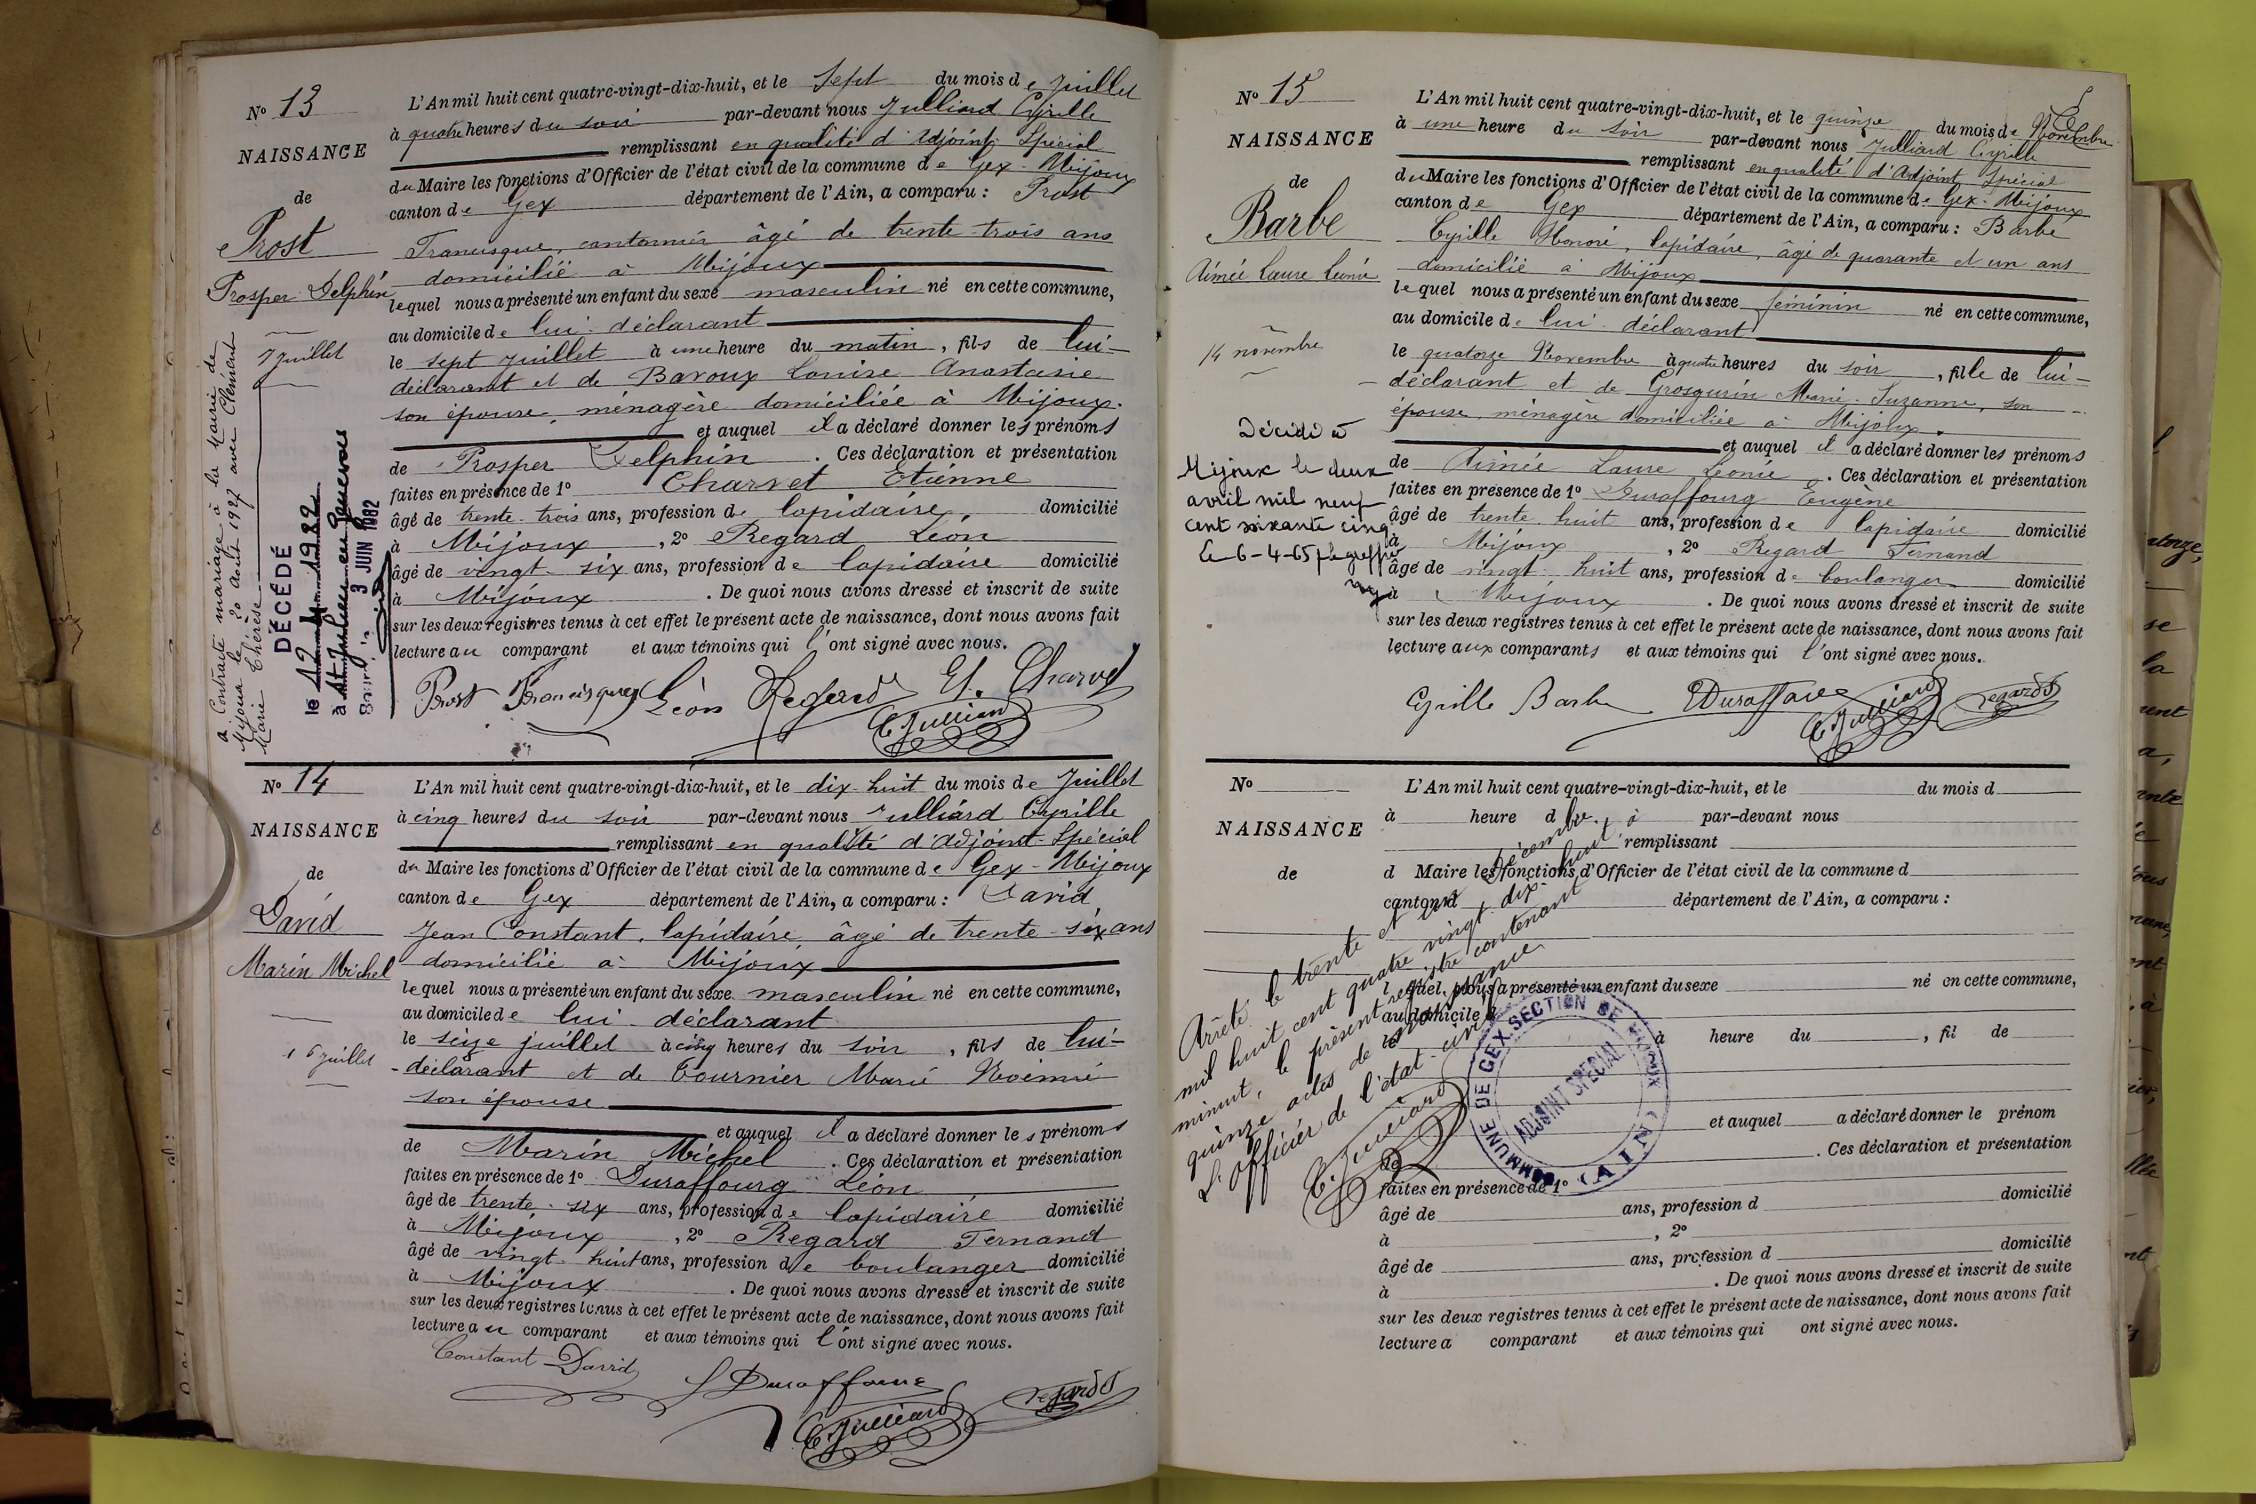 No 13
NAISSANCE
de
Prost
Prosper Delphin
7 Juillet
a Contracté mariage à la Mairie de
Mijoux le 20 Août 1927 avec Clément
Marie Thérèse
DÉCÉDÉ
le 12 1982
à St Julien en Genevois
3 JUIN 1982
L'An mil huit cent quatre-vingt-dix-huit, et le Sept du mois de Juillet
à quatre heures du soir par-devant nous Julliard Cyrille
remplissant en qualité d'Adjoint Spécial
du Maire les fonctions d'Officier de l'état civil de la commune de Gex-Mijoux
canton de Gex département de l'Ain, a comparu : Prost
Francisque, cantonnier âgé de trente-trois ans
domicilié à Mijoux
lequel nous a présenté un enfant du sexe masculin né en cette commune,
au domicile de lui-déclarant
le sept Juillet à une heure du matin, fils de lui-
déclarant et de Baroux Louise Anastasie
son épouse, ménagère domiciliée à Mijoux.
et auquel il a déclaré donner les prénoms
de Prosper Delphin. Ces déclaration et présentation
faites en présence de 1o Charvet Etienne
âgé de trente-trois ans, profession de lapidaire, domicilié
à Mijoux, 2o Regard Léon
âgé de vingt-six ans, profession de lapidaire domicilié
à Mijoux. De quoi nous avons dressé et inscrit de suite
sur les deux registres tenus à cet effet le présent acte de naissance, dont nous avons fait
lecture au comparant et aux témoins qui l'ont signé avec nous.
Prost Francisque Léon Regard Et. Charvet
C. Julliard
No 14
NAISSANCE
de
David
Marin Michel
16 juillet
L'An mil huit cent quatre-vingt-dix-huit, et le dix huit du mois de Juillet
à cinq heures du soir par-devant nous Julliard Cyrille
remplissant en qualité d'Adjoint-Spécial
du Maire les fonctions d'Officier de l'état civil de la commune de Gex-Mijoux
canton de Gex département de l'Ain, a comparu : David
Jean Constant, lapidaire, âgé de trente-six ans
domicilié à Mijoux
lequel nous a présenté un enfant du sexe masculin né en cette commune,
au domicile de lui-déclarant
le seize juillet à cinq heures du soir, fils de lui-
-déclarant et de Tournier Marie Noémie
son épouse
et auquel il a déclaré donner les prénoms
de Marin Michel. Ces déclaration et présentation
faites en présence de 1o Duraffourg Léon
âgé de trente-six ans, profession de lapidaire domicilié
à Mijoux, 2o Regard Fernand
âgé de vingt-huit ans, profession de boulanger domicilié
à Mijoux. De quoi nous avons dressé et inscrit de suite
sur les deux registres tenus à cet effet le présent acte de naissance, dont nous avons fait
lecture au comparant et aux témoins qui l'ont signé avec nous.
Constant David
L Duraffourg regard
C. Julliard
No 15
NAISSANCE
de
Barbe
Aimée Laure Léonie
14 novembre
Décédée à
Mijoux le deux
avril mil neuf
cent soixante cinq
Le 6-4-65 le greffier
L'An mil huit cent quatre-vingt-dix-huit, et le quinze du mois de Novembre
à une heure du soir par-devant nous Julliard Cyrille
remplissant en qualité d'Adjoint Spécial
du Maire les fonctions d'Officier de l'état civil de la commune de Gex-Mijoux
canton de Gex département de l'Ain, a comparu : Barbe
Cyrille Honoré, lapidaire, âgé de quarante et un ans
domicilié à Mijoux
lequel nous a présenté un enfant du sexe féminin né en cette commune,
au domicile de lui-déclarant
le quatorze Novembre à quatre heures du soir, fille de lui-
-déclarant et de Grosgurin Marie-Suzanne, son
épouse, ménagère domiciliée à Mijoux.
et auquel il a déclaré donner les prénoms
de Aimée Laure Léonie. Ces déclaration et présentation
faites en présence de 1o Duraffourg Eugène
âgé de trente-huit ans, profession de lapidaire domicilié
à Mijoux, 2o Regard Fernand
âgé de vingt-huit ans, profession de boulanger domicilié
à Mijoux. De quoi nous avons dressé et inscrit de suite
sur les deux registres tenus à cet effet le présent acte de naissance, dont nous avons fait
lecture aux comparants et aux témoins qui l'ont signé avec nous.
Cyrille Barbe E Duraffourg regard
C. Julliard
No
NAISSANCE
de
L'An mil huit cent quatre-vingt-dix-huit, et le du mois d
à heure d par-devant nous
remplissant
d Maire les fonctions d'Officier de l'état civil de la commune d
canton d département de l'Ain, a comparu :
lequel nous a présenté un enfant du sexe né en cette commune,
au domicile d
à heure du, fil de
et auquel a déclaré donner le prénom
de. Ces déclaration et présentation
faites en présence de 1o
âgé de ans, profession d domicilié
à, 2o
âgé de ans, profession d domicilié
à. De quoi nous avons dressé et inscrit de suite
sur les deux registres tenus à cet effet le présent acte de naissance, dont nous avons fait
lecture a comparant et aux témoins qui ont signé avec nous.
Arrêté le trente et un Décembre à
mil huit cent quatre vingt-dix-huit
minuit, le présent registre contenant
quinze actes de naissance
L'Officier de l'état-civil
C. Julliard
COMMUNE DE GEX SECTION DE MIJOUX
ADJOINT SPÉCIAL
(AIN)